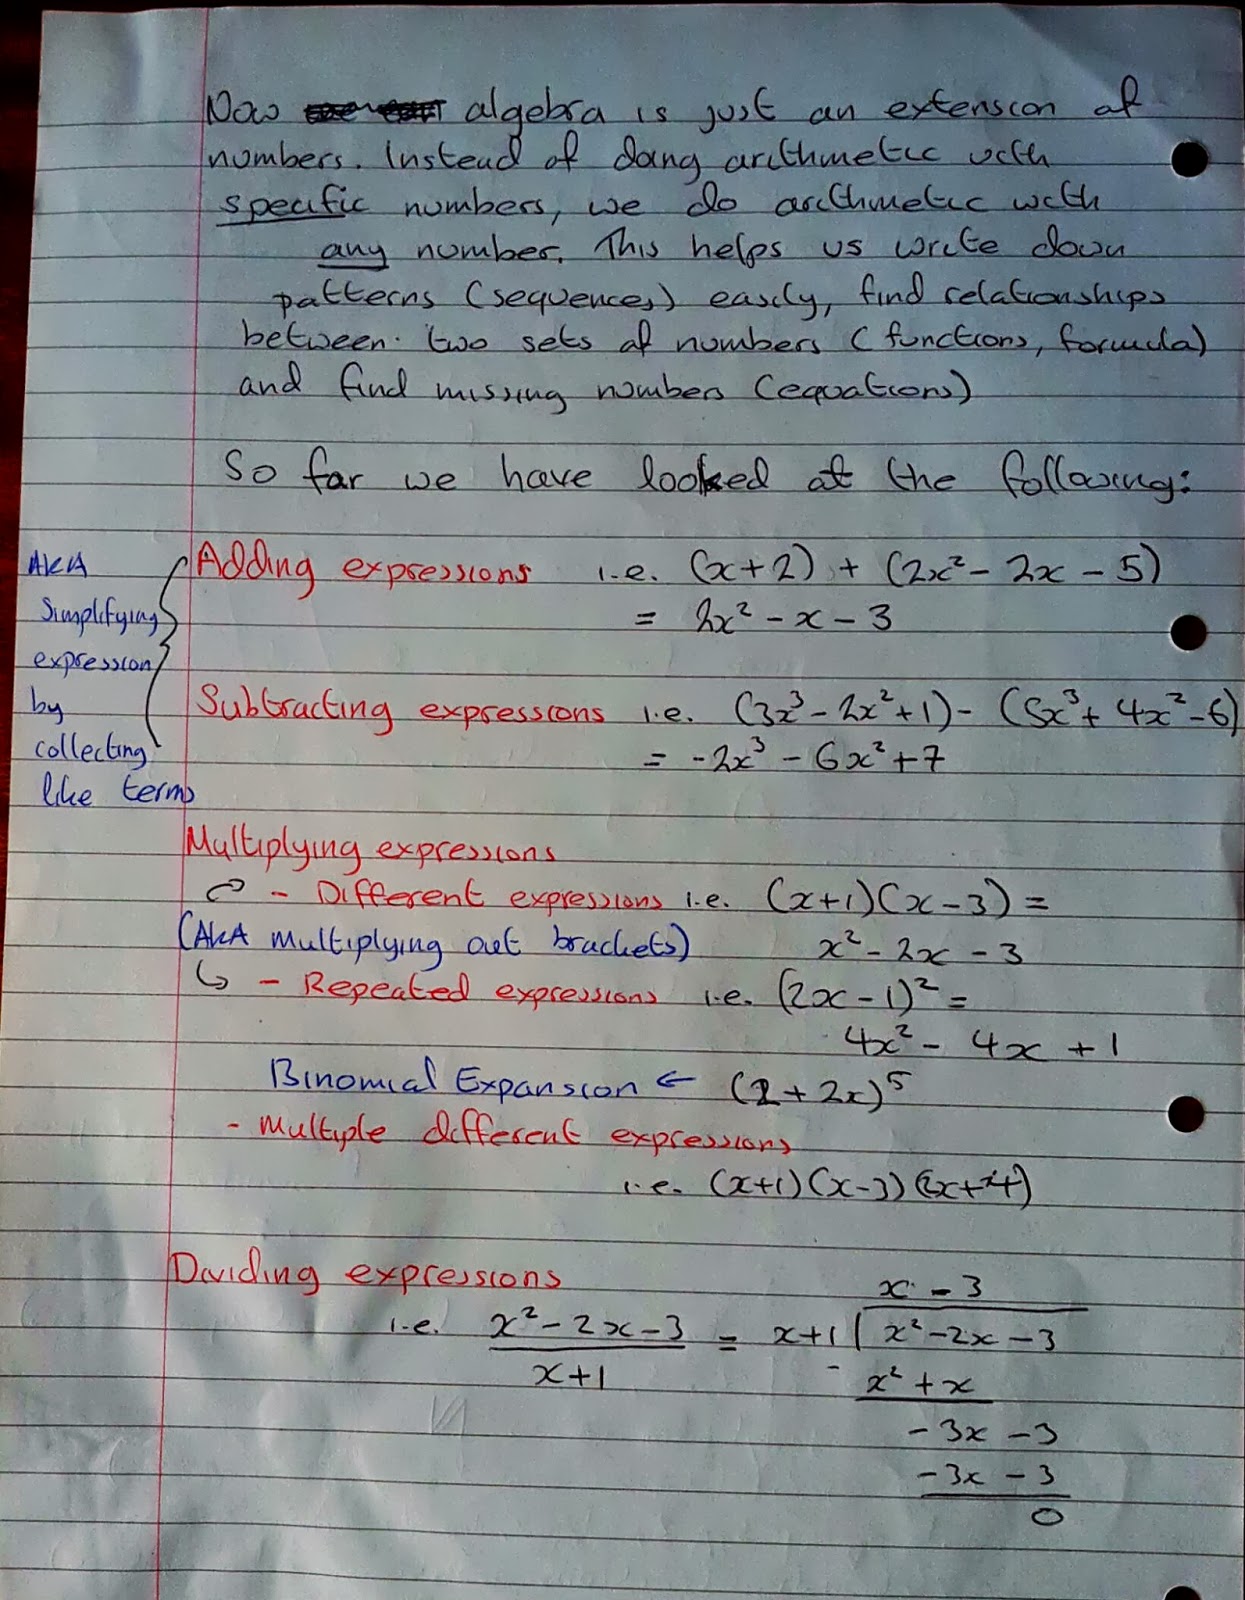 Now algebra is just an extension of
numbers. Instead of doing arithmetic with
specific numbers, we do arithmetic with
any number. This helps us write down
patterns (sequences) easily, find relationships
between two sets of numbers (functions, formula)
and find missing numbers (equations)
So far we have looked at the following:
Adding expressions i.e. (x+2) + (2x² - 2x - 5)
= 2x² - x - 3
AKA
Simplifying
expression
by
collecting
like terms
Subtracting expressions i.e. (3x³ - 2x² + 1) - (5x³ + 4x² - 6)
= -2x³ - 6x² + 7
Multiplying expressions
- Different expressions i.e. (x+1)(x-3) =
(AKA multiplying out brackets) x² - 2x - 3
↳ - Repeated expressions i.e. (2x - 1)² =
4x² - 4x + 1
Binomial Expansion ← (2 + 2x)⁵
- Multiple different expressions
i.e. (x+1)(x-3)
Dividing expressions
x - 3
i.e. x² - 2x - 3 = x+1 x² - 2x - 3
x+1 - x² + x
-3x - 3
-3x - 3
0